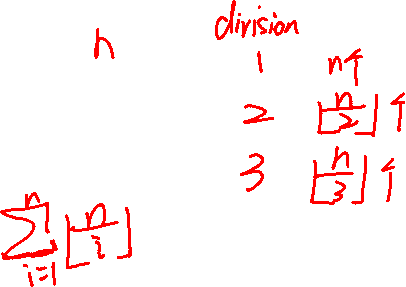 n division
1 n个
2 ⌊n/2⌋个
3 ⌊n/3⌋个
∑_{i=1}^{n} ⌊n/i⌋